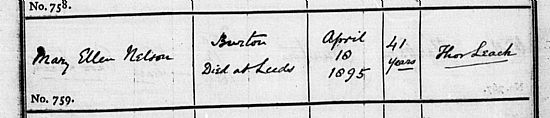 No. 758.
Mary Ellen Nelson
Burton
Died at Leeds
April
18
1895
41
years
Thos Leach
No. 759.